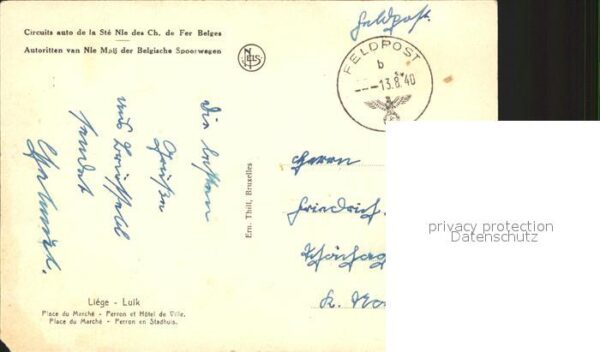 Circuits auto de la Sté Nle des Ch. de Fer Belges
Autoritten van Nle Mpij der Belgische Spoorwegen
NELS
Feldpost
FELDPOST
b
---13.8.40
Die besten
Grüßen
aus Brüssel
sendet
Helmut.
Ern. Thill, Bruxelles
Herrn
Friedrich
privacy protection
Datenschutz
Liége - Luik
Place du Marché - Perron et Hôtel de Ville.
Place du Marché - Perron en Stadhuis.